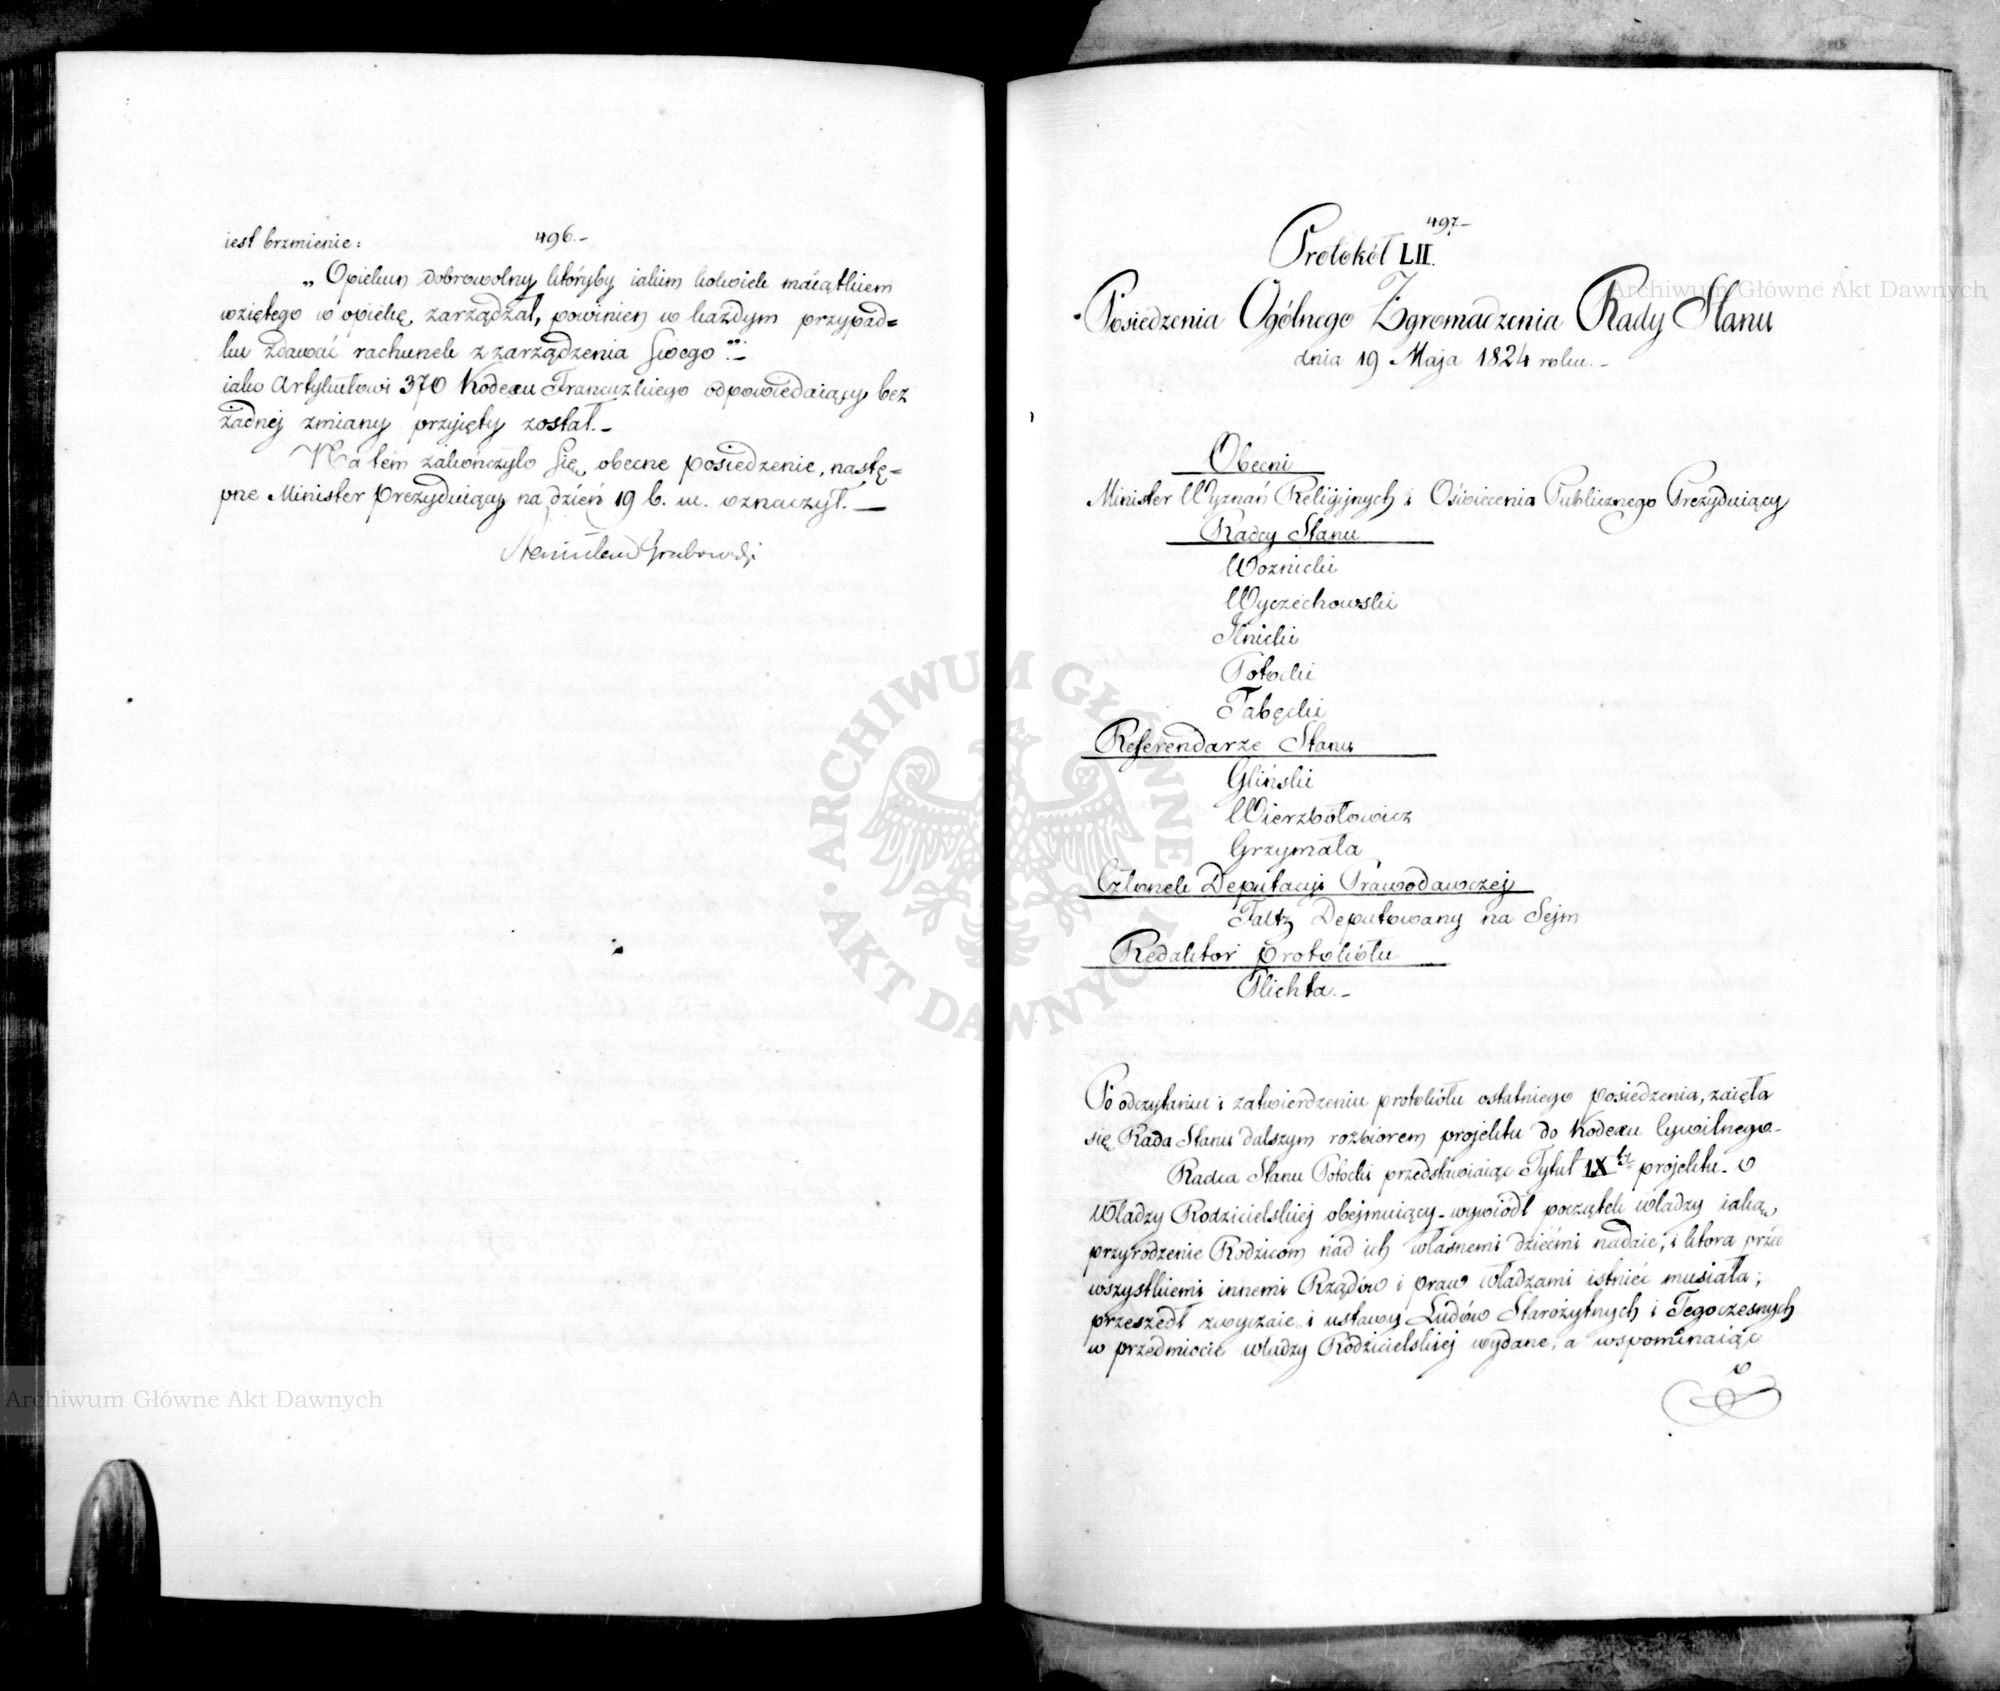 496.-
iest brzmienie:
„Opiekun dobrowolny któryby iakim kolwiek maiątkiem
wziętego w opiekę, zarządzał, powinien w każdym przypad=
ku zdawać rachunek z zarządzenia swego".-
iako Artykułowi 370 Kodexu Francuzkiego odpowiedaiący bez
żadnej zmiany przyięty został.-
Na tém zakończyło się obecne posiedzenie, nastę=
pne Minister Prezyduiący na dzień 19 b. m. oznaczył.—
Stanisław Grabowski
497.-
Protokół LII.
Posiedzenia Ogólnego Zgromadzenia Rady Stanu
dnia 19 Maja 1824 roku.-
Obecni
Minister Wyznań Religijnych i Oświecenia Publicznego Prezyduiący
Radcy Stanu
Woznicki
Wyczechowski
Ilnicki
Potocki
Tabęcki
Referendarze Stanu
Gliński
Wierzbołowicz
Grzymała
Członek Deputacyi Prawodawczej
Faltz Deputowany na Sejm
Redaktor protokółu
Plichta.-
Po odczytaniu i zatwierdzeniu protokółu ostatniego posiedzenia, zaięła
się Rada Stanu dalszym rozbiorem projektu do Kodexu Cywilnego.-
Radca Stanu Potocki przedstawiaiąc Tytuł IXty projektu- o
Władzy Rodzicielskiej obejmuiący- wywiódł początek władzy iaką,
przyrodzenie Rodzicom nad ich własnemi dziećmi nadaie, i która przed
wszystkiemi innemi Rządów i praw władzami istnieć musiała;
przeszedł zwyczaie i ustawy Ludów Starożytnych i Tegoczesnych
w przedmiocie władzy Rodzicielskiej wydane, a wspominaiąc
o
Archiwum Główne Akt Dawnych
Archiwum Główne Akt Dawnych
ARCHIWUM GŁÓWNE • AKT DAWNYCH •